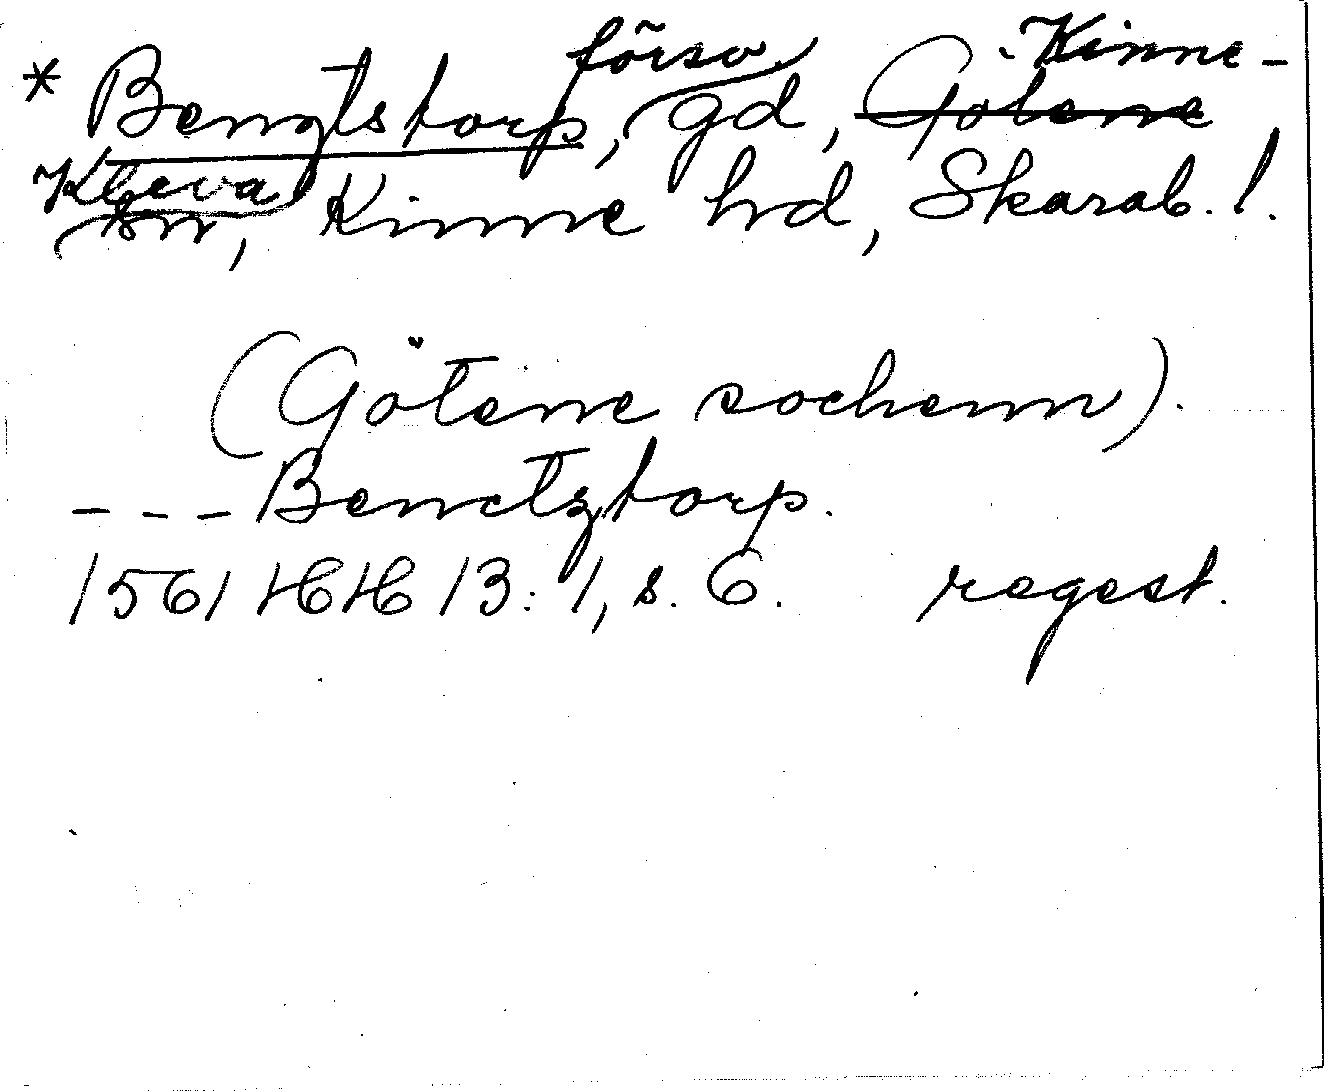 * Bengtstorp, försv. gd, Götene Kinne-
Kleva sn, Kinne hd, Skarab. l.
(Götene sochenn).
--- Benctztorp.
1561 HH 13:1, s. 6. regest.